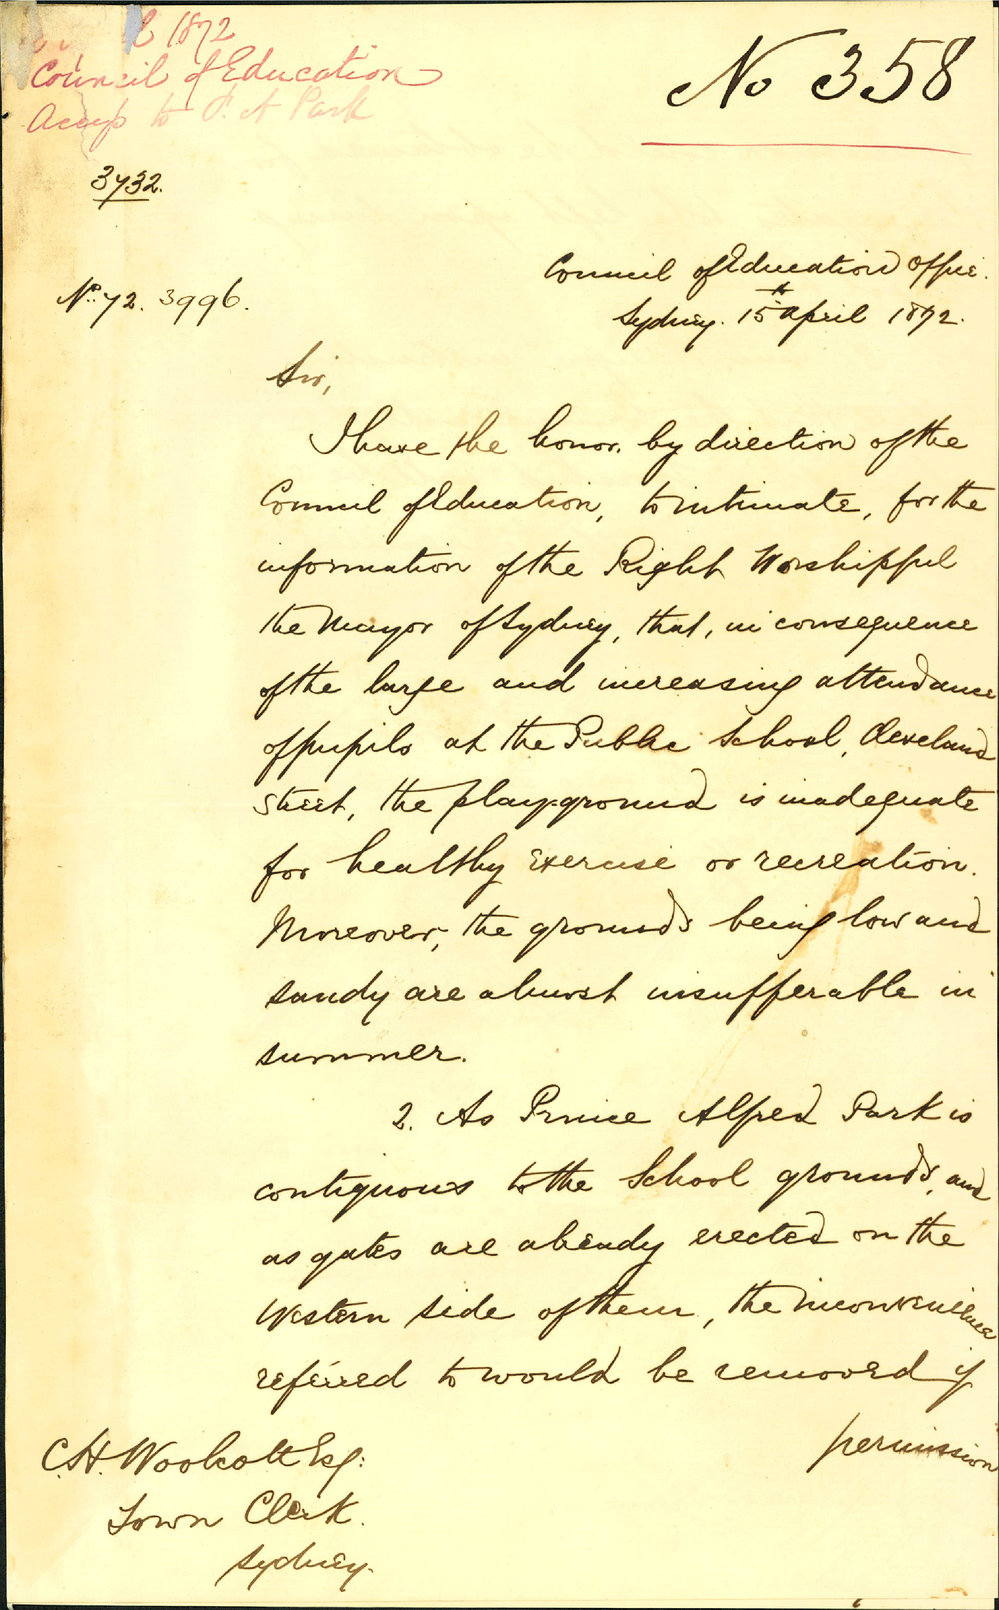 1872
Council of Education
Access to P. A Park
No 358
3732.
No. 72. 3996.
Council of Education Office.
Sydney. 15th April 1872.
Sir,
I have the honor, by direction of the
Council of Education, to intimate, for the
information of the Right Worshipful
the Mayor of Sydney, that, in consequence
of the large and increasing attendance
of pupils at the Public School, Cleveland
Street, the play-ground is inadequate
for healthy exercise or recreation.
Moreover, the grounds being low and
sandy are almost insufferable in
summer.
2. As Prince Alfred Park is
contiguous to the School grounds, and
as gates are already erected on the
Western side of them, the inconvenience
referred to would be removed if
permission
C. H. Woolcott Esq:
Town Clerk.
Sydney.